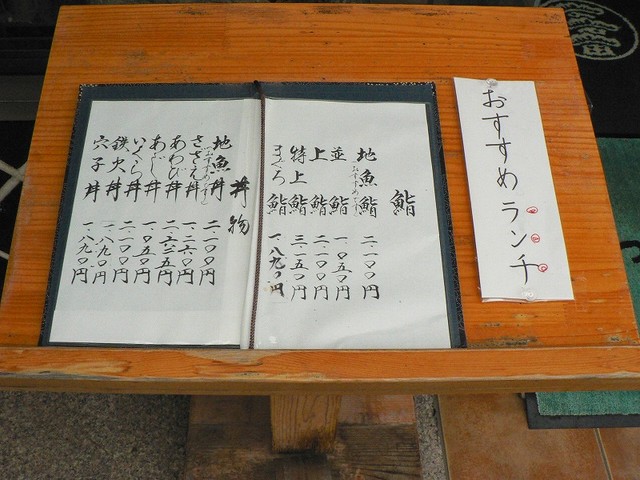 おすすめランチ
鮨
地魚鮨 二.一〇〇円
おすすめです
並鮨 一.〇五〇円
上鮨 二.一〇〇円
特上鮨 三.一五〇円
まぐろ鮨 一.八九〇円
丼物
地魚丼 二.一〇〇円
おすすめです
さざえ丼 一.二六〇円
あわび丼 二.六二五円
あじ丼 一.〇五〇円
いくら丼 二.一〇〇円
鉄火丼 一.八九〇円
穴子丼 一.八九〇円